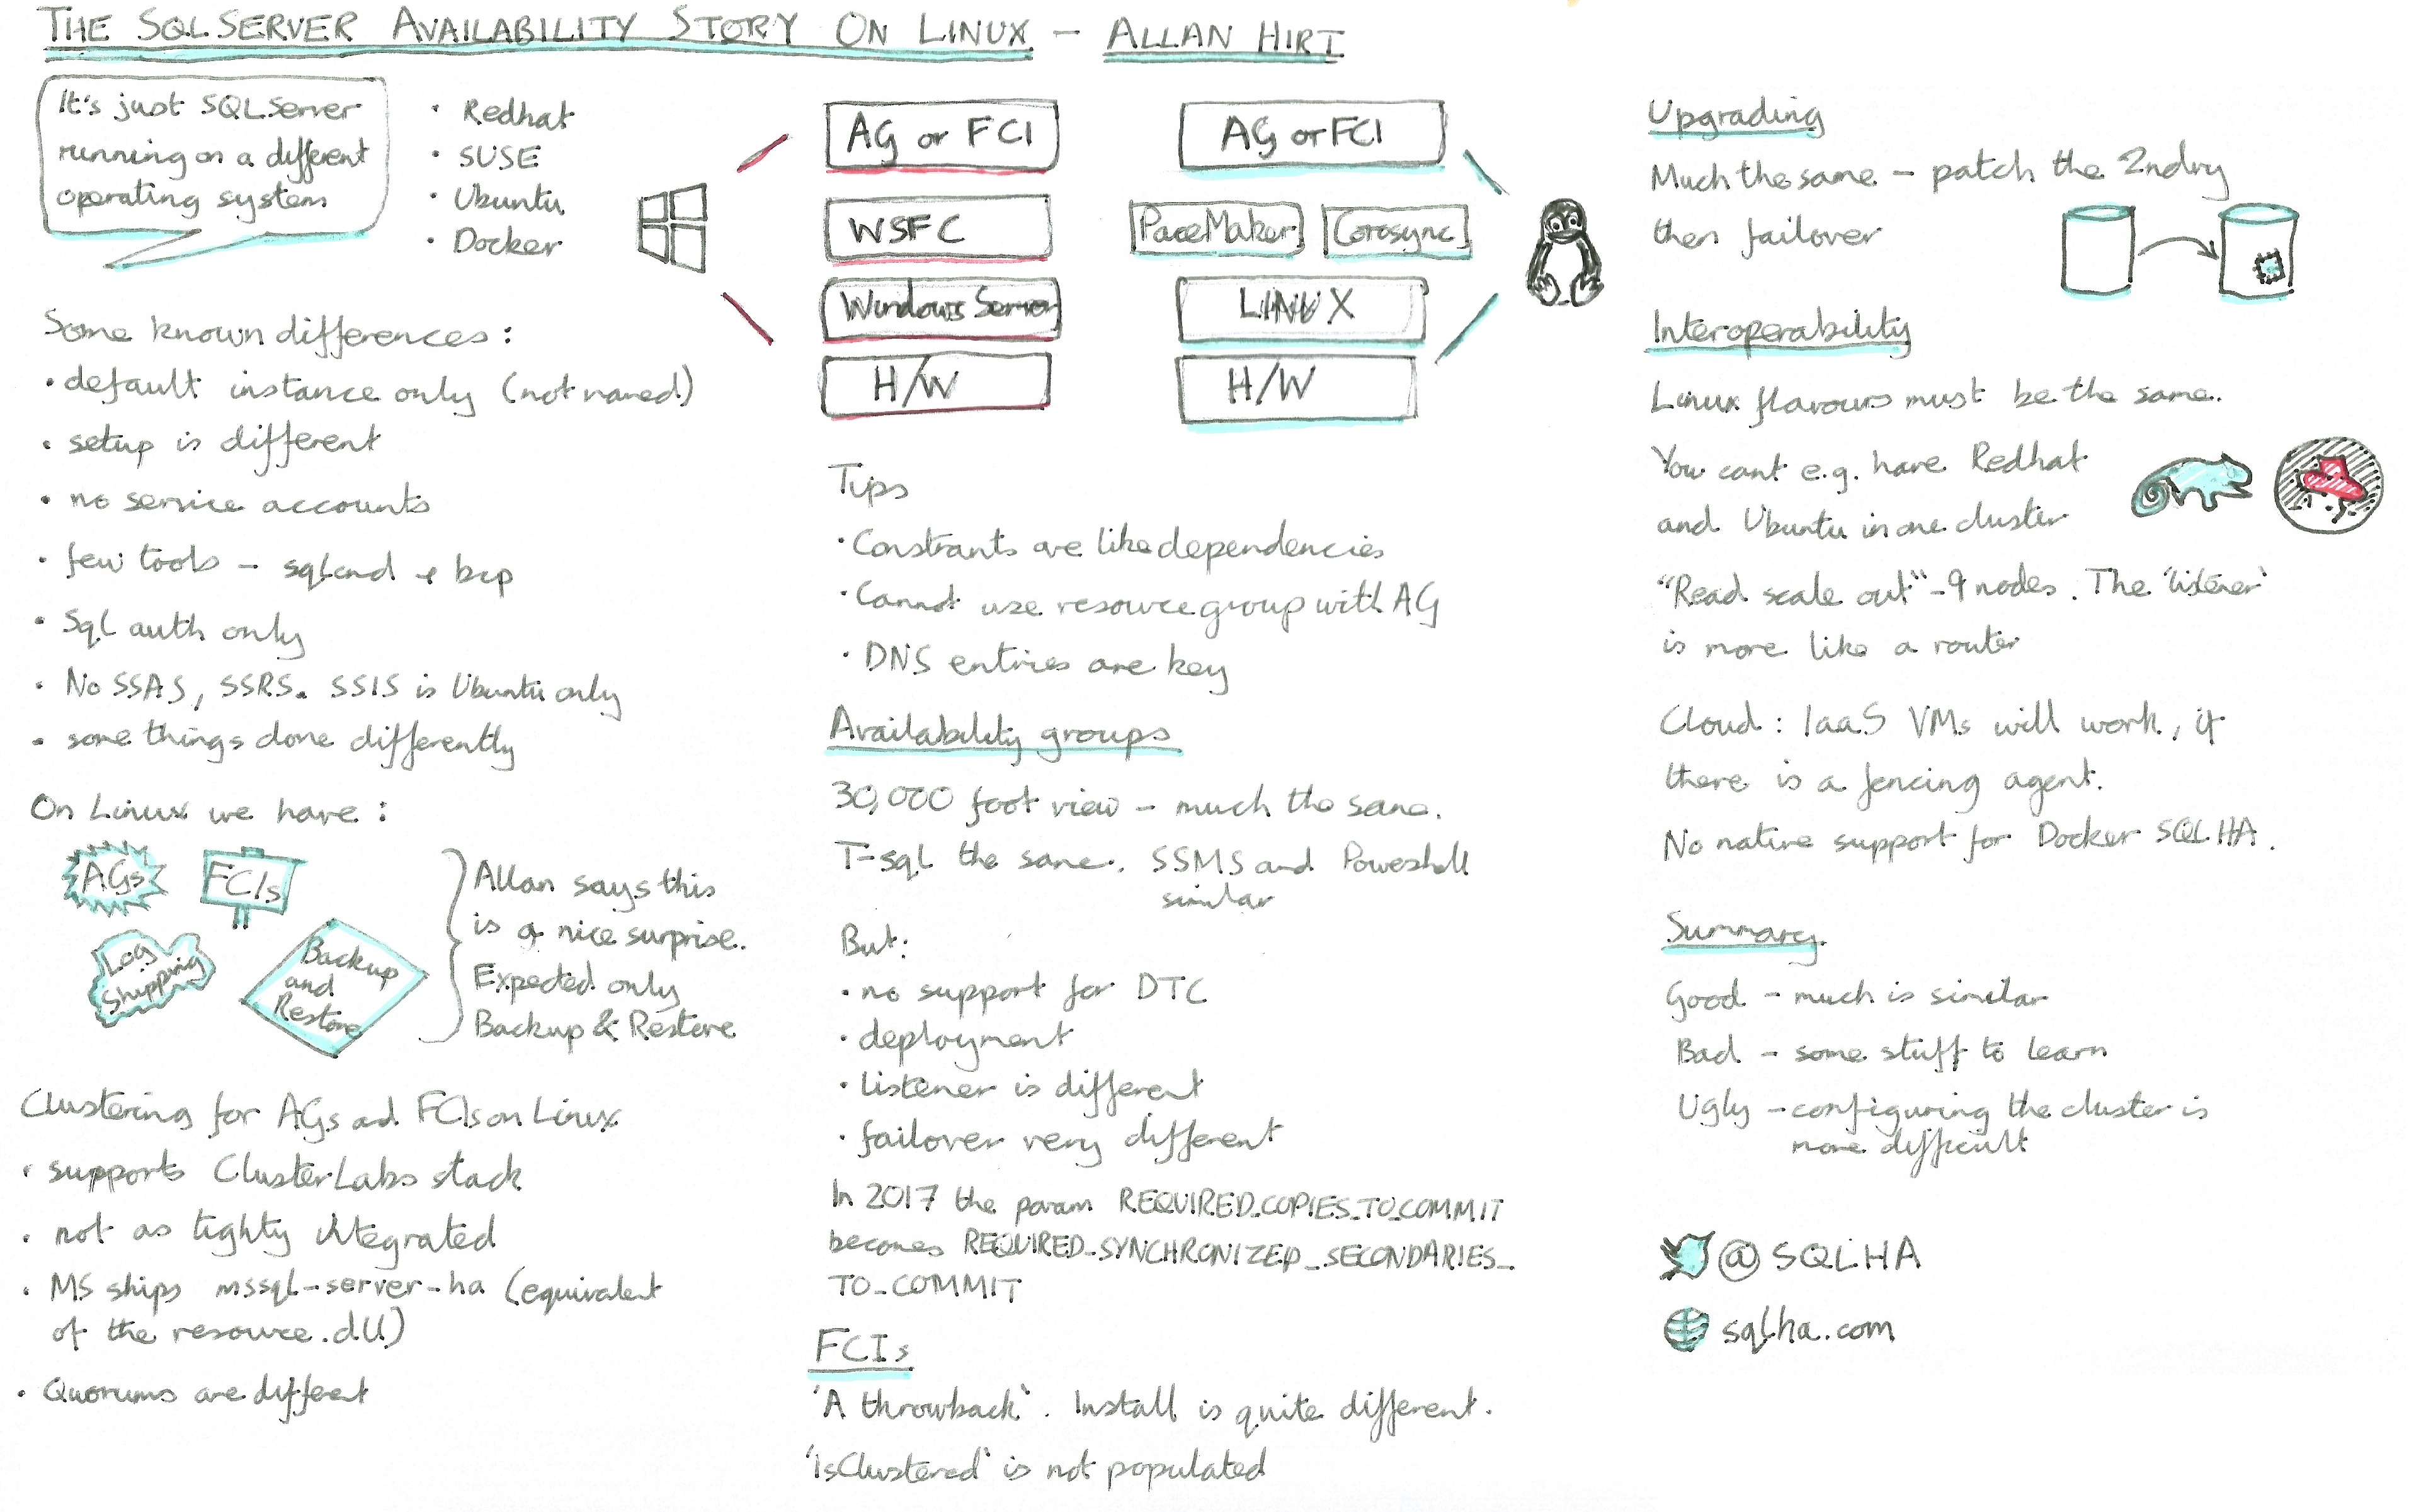 THE SQL SERVER AVAILABILITY STORY ON LINUX - ALLAN HIRT
It's just SQL Server
running on a different
operating system
• Redhat
• SUSE
• Ubuntu
• Docker
Some known differences:
• default instance only (not named)
• setup is different
• no service accounts
• few tools - sqlcmd + bcp
• Sql auth only
• No SSAS, SSRS. SSIS is Ubuntu only
• some things done differently
On Linux we have:
AGs
FCIs
Log
Shipping
Backup
and
Restore
Allan says this
is a nice surprise.
Expected only
Backup & Restore
Clustering for AGs ad FCIs on Linux
• supports ClusterLabs stack
• not as tighty integrated
• MS ships mssql-server-ha (equivalent
of the resource.dll)
• Quorums are different
AG or FCI
WSFC
Windows Server
H/W
AG or FCI
PaceMaker
Corosync
LINUX
H/W
Tips
• Constrants are like dependencies
• Cannot use resource group with AG
• DNS entries are key
Availability groups
30,000 foot view - much the same.
T-sql the same. SSMS and Powershell
similar
But:
• no support for DTC
• deployment
• listener is different
• failover very different
In 2017 the param REQUIRED_COPIES_TO_COMMIT
becomes REQUIRED_SYNCHRONIZED_SECONDARIES_
TO_COMMIT
FCIs
'A throwback'. Install is quite different.
'IsClustered' is not populated
Upgrading
Much the same - patch the 2ndry
then failover
Interoperability
Linux flavours must be the same.
You cant e.g. have Redhat
and Ubuntu in one cluster
"Read scale out" - 9 nodes. The 'listener'
is more like a router
Cloud: IaaS VMs will work, if
there is a fencing agent.
No native support for Docker SQL HA.
Summary
Good - much is similar
Bad - some stuff to learn
Ugly - configuring the cluster is
more difficult
@SQLHA
sqlha.com